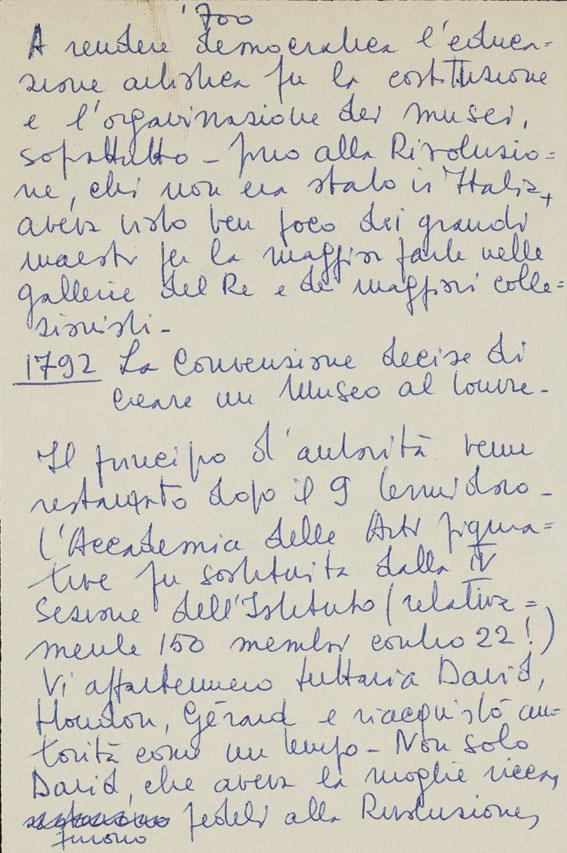 '700
A rendere democratica l'educa=
zione artistica fu la costituzione
e l'organizzazione dei musei,
soprattutto - fino alla Rivoluzio=
ne, chi non era stato in Italia,
aveva visto ben poco dei grandi
maestri per la maggior parte nelle
gallerie del Re e dei maggiori colle=
zionisti -
1792 La Convenzione decise di
creare un Museo al Louvre -
Il principio d'autorità venne
restaurato dopo il 9 termidoro -
L'Accademia delle Arti figura=
tive fu sostituita dalla IV
Sezione dell'Istituto (relativa=
mente 150 membri contro 22!)
Vi appartennero tuttavia David,
Houdon, Gérard e riacquistò au=
torità come un tempo - Non solo
David, che aveva la moglie ricca,
furono fedeli alla Rivoluzione,